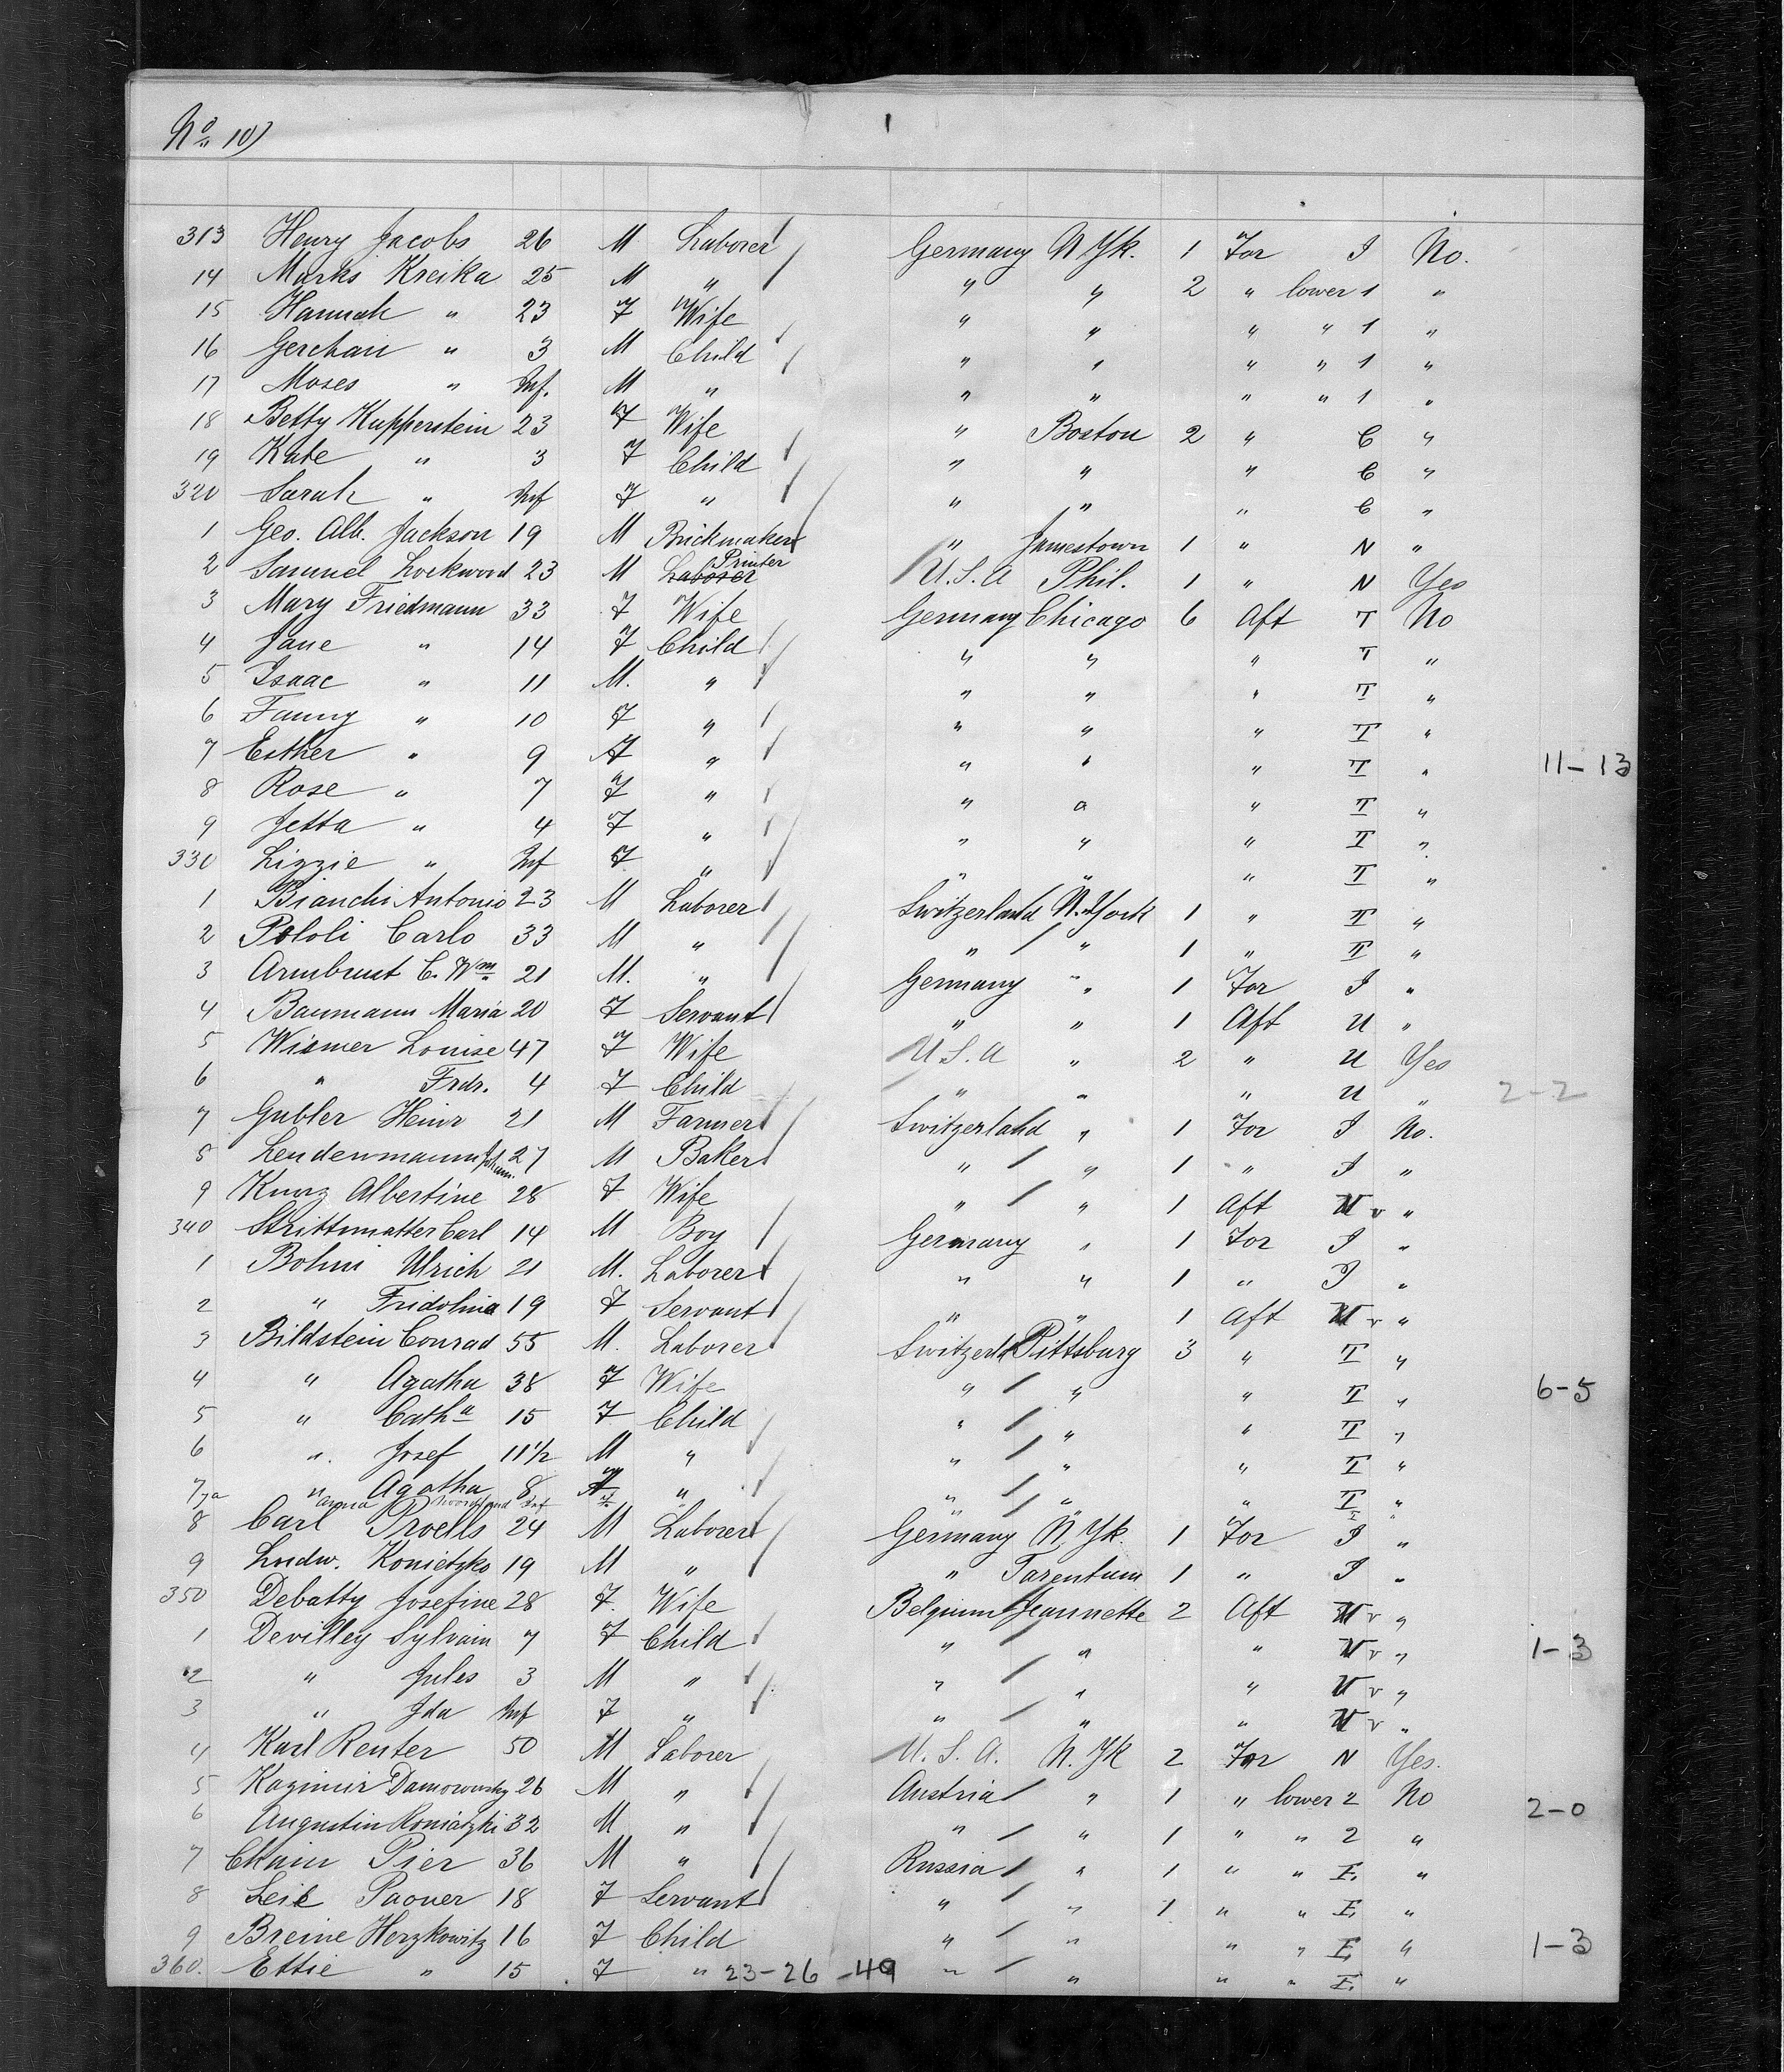 No 10)
313 Henry Jacobs 26 M Laborer Germany N.Yk. 1 For I No.
14 Marks Kreika 25 M " " " 2 " lower 1 "
15 Hannah " 23 F Wife " " " " 1 "
16 Gerchan " 3 M Child " " " " 1 "
17 Moses " Inf. M " " " " " 1 "
18 Betty Kupperstein 23 F Wife " Boston 2 " C "
19 Kate " 3 F Child " " " C "
320 Sarah " Inf F " " " " C "
1 Geo. Alb. Jackson 19 M Brickmaker " Jamestown 1 " N "
2 Samuel Lockwood 23 M Laborer Printer U.S.A Phil. 1 " N Yes
3 Mary Friedmann 33 F Wife Germany Chicago 6 Aft T No
4 Jane " 14 F Child " " " T "
5 Isaac " 11 M. " " " " T "
6 Fanny " 10 F " " " " T "
7 Esther " 9 F " " " " T " 11-13
8 Rose " 7 F " " " " T "
9 Jetta " 4 F " " " " T "
330 Lizzie " Inf F " " " " T "
1 Bianchi Antonio 23 M Laborer Switzerland N.York 1 " T "
2 Pololi Carlo 33 M " " " 1 " T "
3 Armbrust C. Wm 21 M. " Germany " 1 For I "
4 Baumann Maria 20 F Servant " " 1 Aft U "
5 Wismer Louise 47 F Wife U.S.A " 2 " U Yes
6 " Frdr. 4 F Child " " " U " 2-2
7 Gubler Heinr 21 M Farmer Switzerland " 1 For I No.
8 Lendenmann Johann. 27 M Baker " " 1 " I "
9 Kunz Albertine 28 F Wife " " 1 Aft U v "
340 Strittmatter Carl 14 M Boy Germany " 1 For I "
1 Bohni Ulrich 21 M. Laborer " " 1 " I "
2 " Fridolina 19 F Servant " " 1 Aft U v "
3 Bildstein Conrad 55 M. Laborer Switzerld Pittsburg 3 " T "
4 " Agatha 38 F Wife " " " T " 6-5
5 " Catha 15 F Child " " " T "
6 " Josef 11 1/2 M " " " " T "
7 " Agatha 8 F " " " " T "
7a " Anna Inf
8 Carl Proells 24 M Laborer Germany N.Yk. 1 For I "
9 Ludw. Konietzko 19 M " " Tarentum 1 " I "
350 Debatty Josefine 28 F. Wife Belgium Jeannette 2 Aft U v "
1 Devilley Sylvain 7 F Child " " " U v " 1-3
2 " Jules 3 M " " " " U v "
3 " Ida Inf F " " " " U v "
4 Karl Renter 50 M Laborer U.S.A. N.Yk 2 For N Yes.
5 Kazimir Damorowsky 26 M " Austria " 1 " lower 2 No
6 Augustin 32 M " " " 1 " " 2 " 2-0
7 Chaim Pier 36 M " Russia " 1 " " E. "
8 Leib Paoner 18 F Servant " " 1 " " E. "
9 Breine Herzkowitz 16 F Child " " " " E. " 1-3
360. Ettie " 15 F " 23-26-49 " " " " E. "